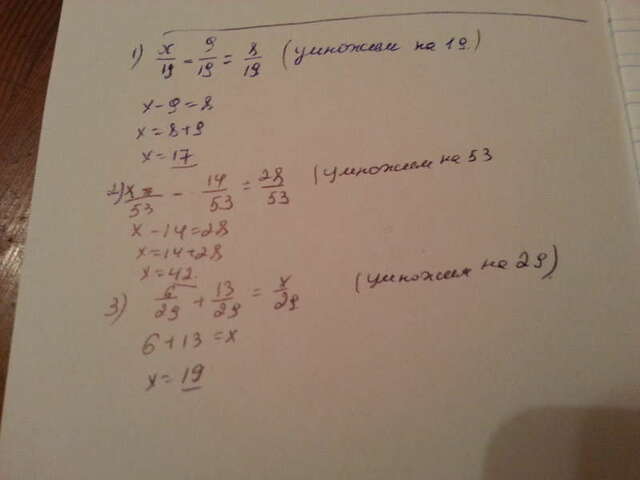 1) x/19 - 9/19 = 8/19 (умножим на 19)
x-9=8
x=8+9
x=17
2) x/53 - 14/53 = 28/53 (умножим на 53
x-14=28
x=14+28
x=42
3) 6/29 + 13/29 = x/29 (умножим на 29)
6+13=x
x=19